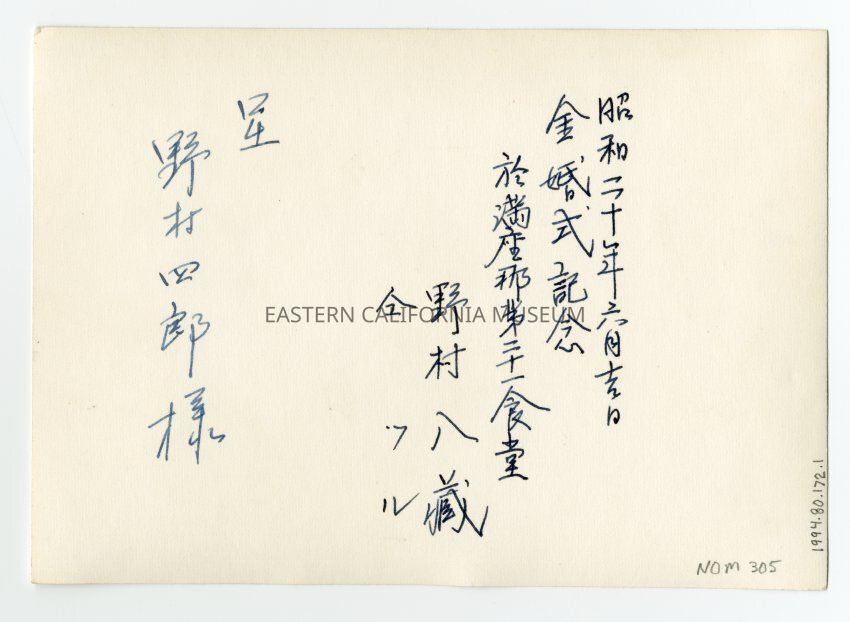 昭和二十年六月吉日
金婚式記念
於満座那第二十一食堂
野村八蔵
仝ツル
呈
野村四郎様
EASTERN CALIFORNIA MUSEUM
1994.80.172.1
NOM 305